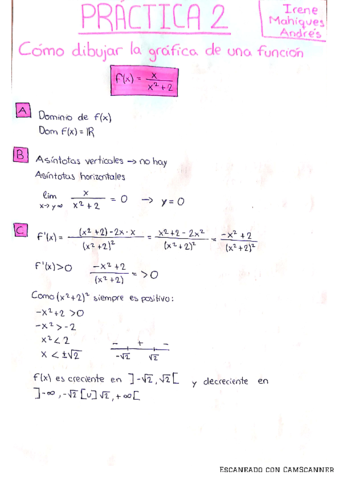 PRÁCTICA 2
Irene
Mahiques
Andrés
Cómo dibujar la gráfica de una función
f(x) = x / x²+2
A Dominio de f(x)
Dom f(x) = ℝ
B Asíntotas verticales → no hay
Asíntotas horizontales
lim x→∞ x / x²+2 = 0 → y = 0
C f'(x) = (x²+2)-2x·x / (x²+2)² = x²+2-2x² / (x²+2)² = -x²+2 / (x²+2)²
f'(x)>0 -x²+2 / (x²+2) = >0
Como (x²+2)² siempre es positivo:
-x²+2 >0
-x²>-2
x²<2
x < ±√2
- + -
-√2 √2
f(x) es creciente en ]-√2, √2[ y decreciente en
]-∞, -√2[U]√2, +∞[
ESCANEADO CON CAMSCANNER